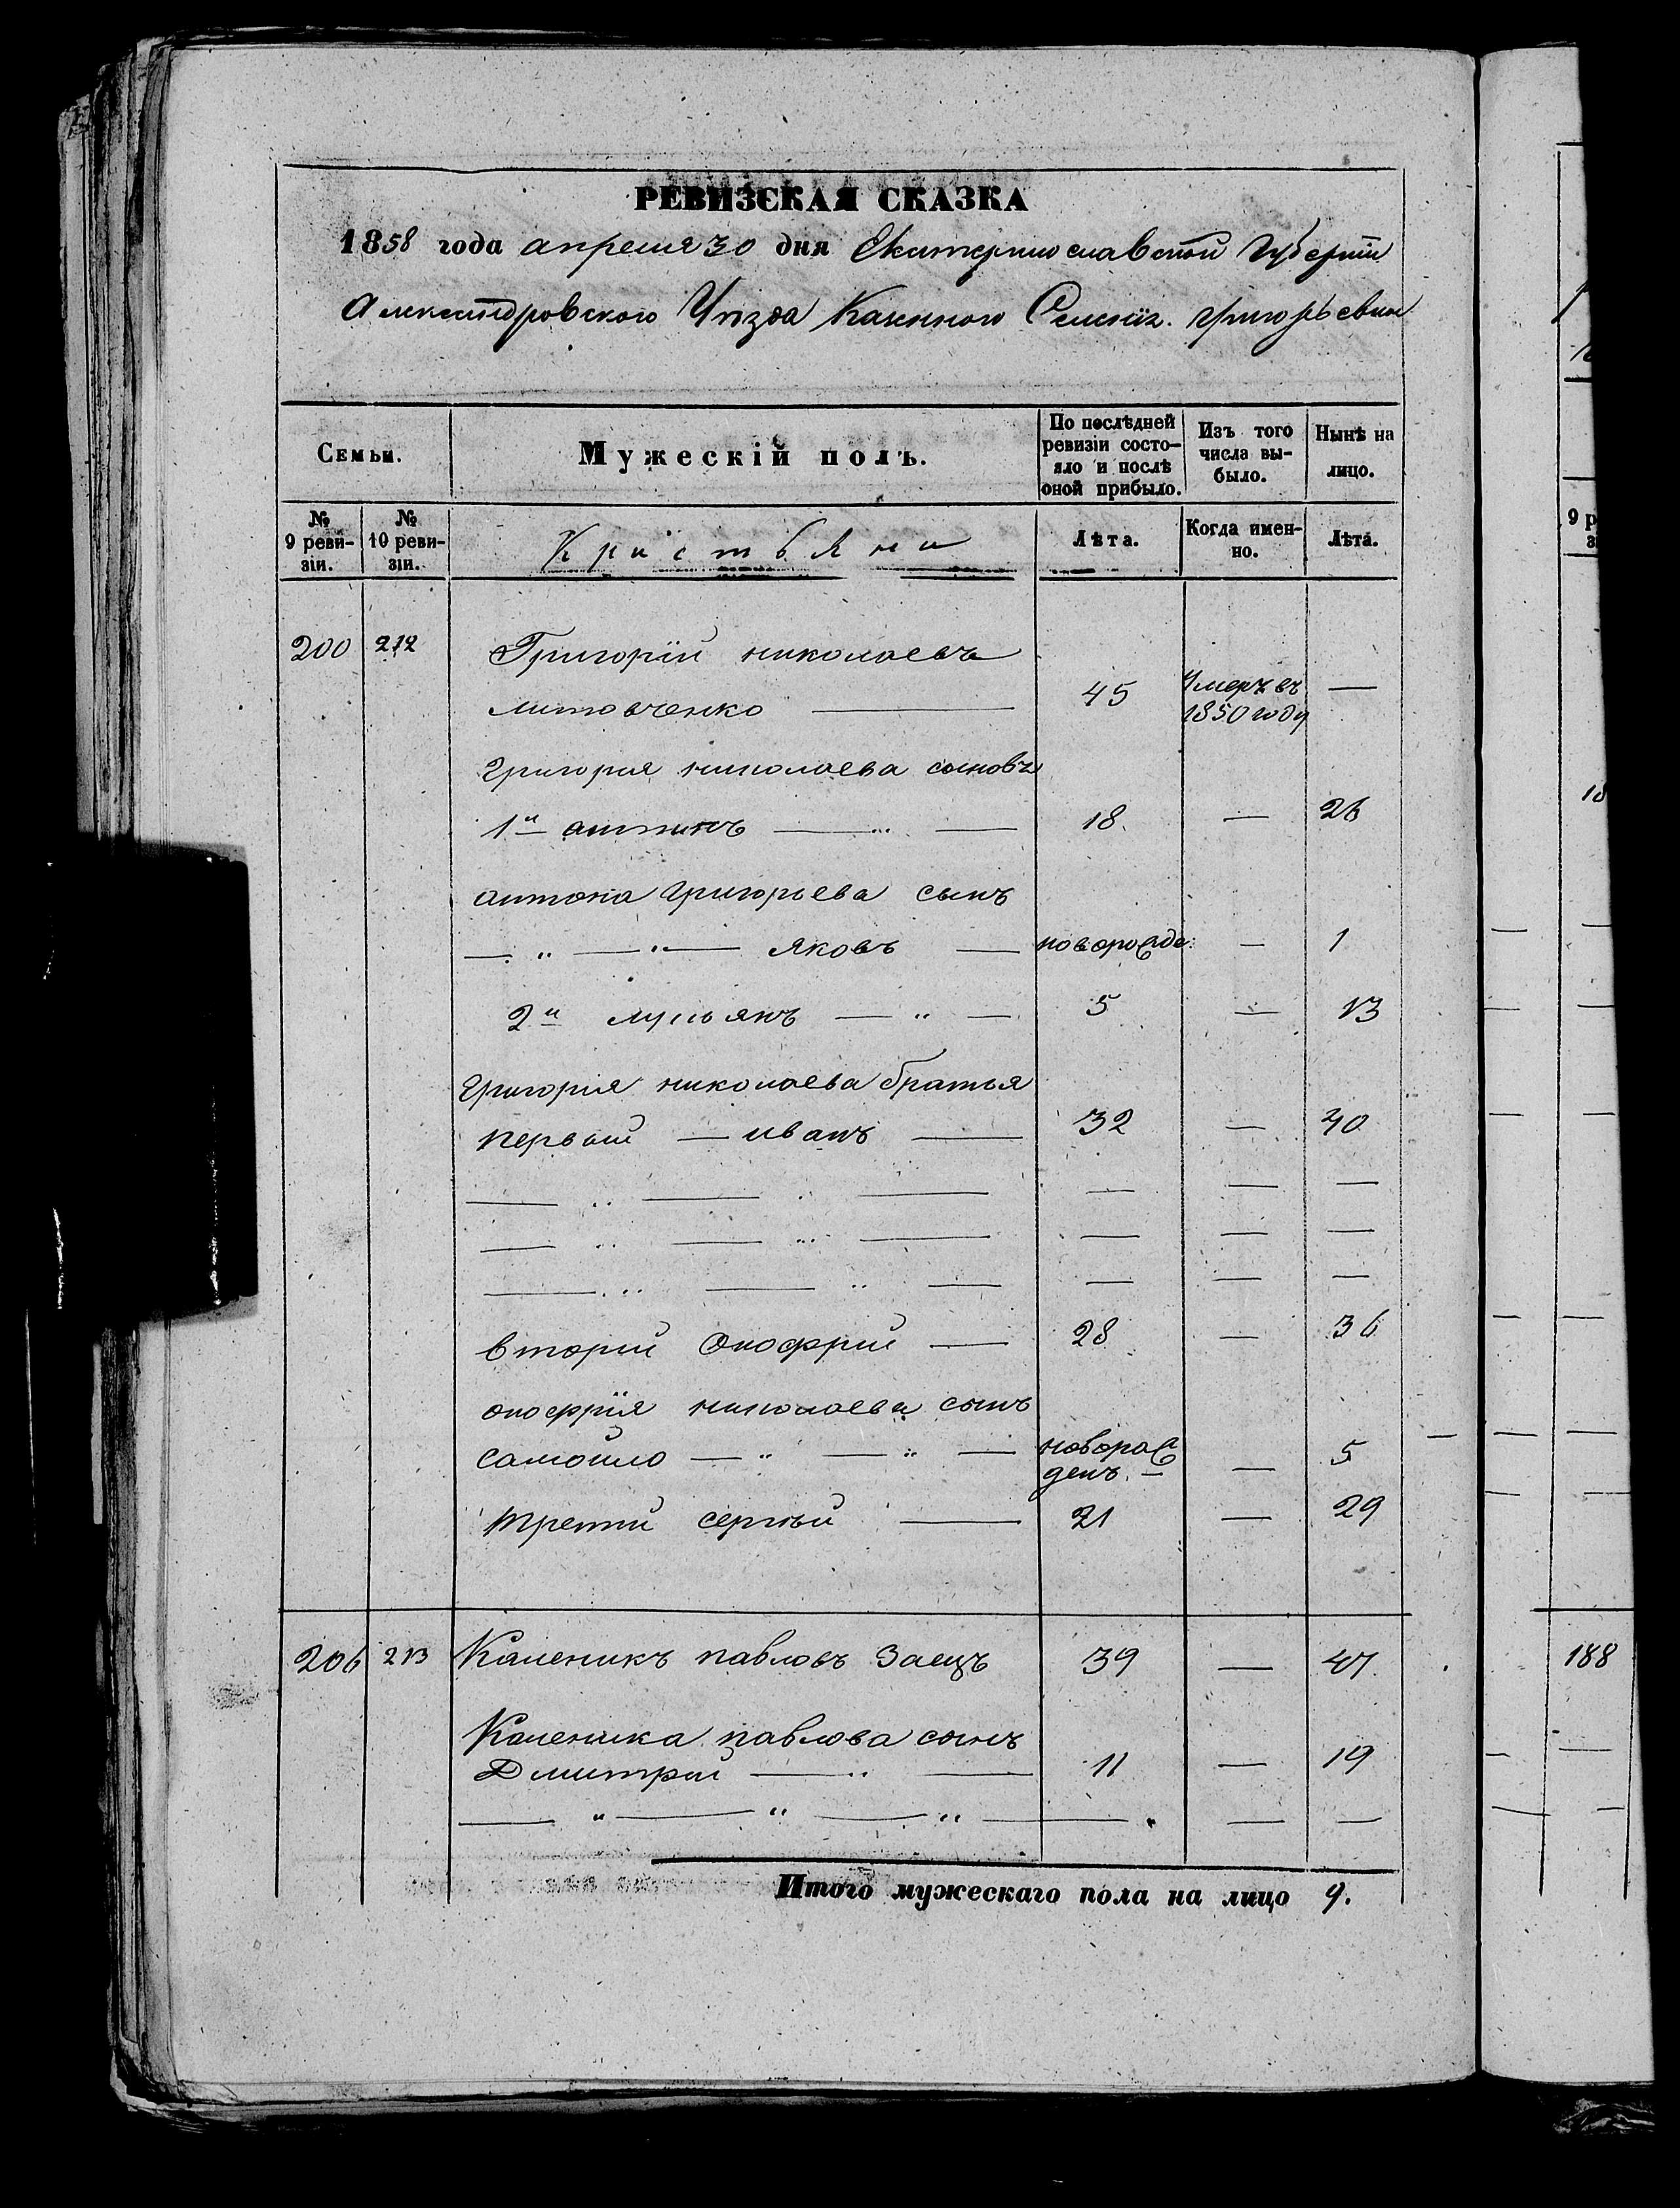 РЕВИЗСКАЯ СКАЗКА
1858 года апреля 30 дня Екатеринославской Губернiи
Александровского Уѣзда Казенного Селенiя Григорьевки
Семьи.
Мужескій полъ.
По послѣдней ревизіи состояло и послѣ оной прибыло.
Изъ того числа выбыло.
Нынѣ на лицо.
№ 9 ревизіи.
№ 10 ревизіи.
Кристьяни
Лѣта.
Когда именно.
Лѣта.
200 212 Григорій николаевъ
литовченко — 45 Умеръ въ 1850 году —
Григория николаева сыновъя
1й антонъ — „ — 18. — 26
антона Григорьева сынъ
— „ — „ — яковъ — новорожде: — 1
2й лукьянъ — „ — 5 — 13
Григорія николаева братья
первый — иванъ — 32 — 40
— „ — „ — — — —
— „ — „ — — — —
— „ — „ — — — —
вторий Онофрий — 28 — 36
онофрія николаева сынъ
самойло — „ — „ — новорож
денъ. — — 5
третий сергѣй — 21 — 29
206 213 Каленикъ павловъ Заецъ 39 — 47
Каленика павлова сынъ
Дмитрий — „ — 11 — 19
— „ — „ — „ — — —
Итого мужескаго пола на лицо 9.
9 р
18
188